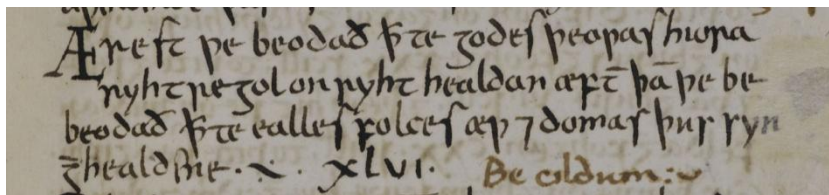 Æreſt ƿe beodað ꝥte godeſ þeoƿaſ hiora
ryht regol on ryht healdan æft̄ þā ƿe be
beodað ꝥte ealleſ folceſ æƿ ⁊ domaſ þuſ ſyn
ḡhealdne. XLVI. Be cildum: